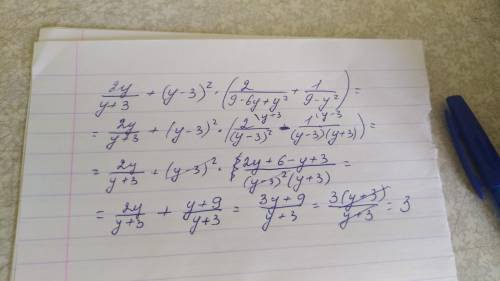 2y/(y+3) + (y-3)² · (2/(9-6y+y²) + 1/(9-y²)) =
= 2y/(y+3) + (y-3)² · (2\y+3/(y-3)² - 1\y-3/((y-3)(y+3))) =
= 2y/(y+3) + (y-3)² · (2y+6-y+3)/((y-3)²(y+3)) =
= 2y/(y+3) + (y+9)/(y+3) = (3y+9)/(y+3) = 3(y+3)/(y+3) = 3